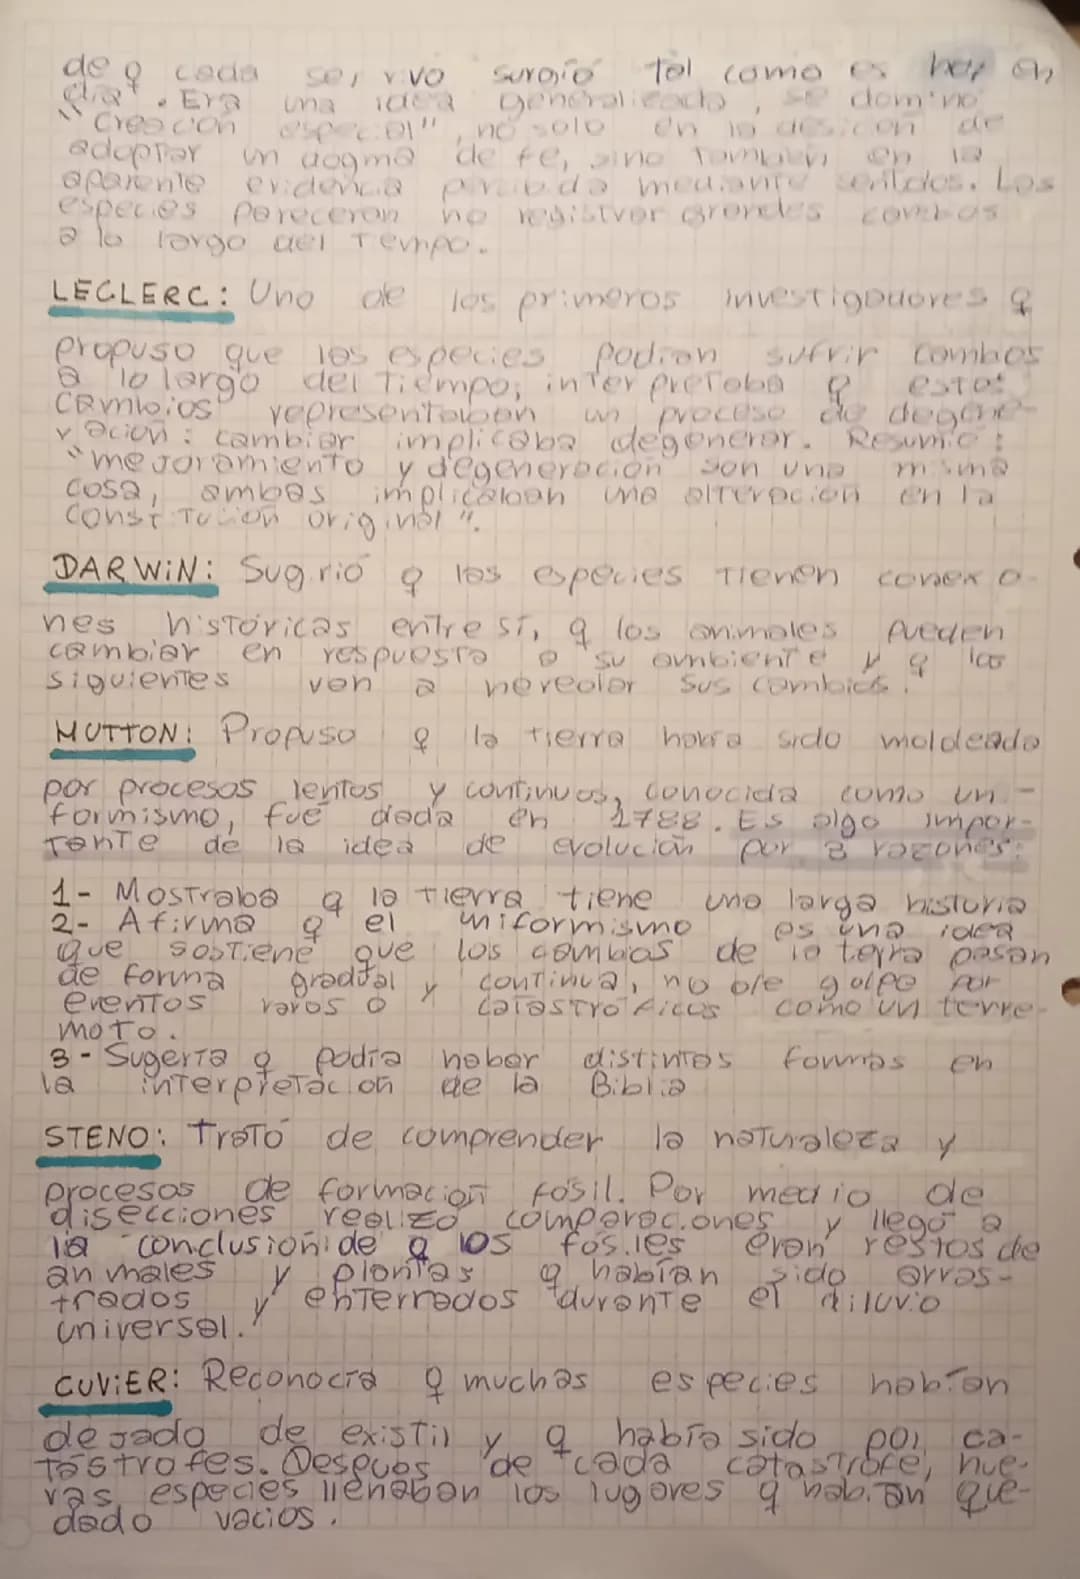 de q cada ser vivo surgió tal como es hoy en
dia". Era una idea generalizada, se dominó
"Creacion especial", no solo en la desicon de
adoptar un dogma de fe, sino tambien en la
aparente evidencia percibida mediante sentidos. Las
especies parecieron no registrar grandes cambios
a lo largo del tiempo.
LECLERC: Uno de los primeros investigadores q
propuso que las especies podian sufrir cambios
a lo largo del tiempo; interpretaba q estos
cambios representaban un proceso de degene-
ración: cambiar implicaba degenerar. Resumió:
"mejoramiento y degeneracion son una misma
cosa, ambas implicaban una alteracion en la
constitucion original".
DARWiN: Sugirió q las especies tienen conexio-
nes históricas entre sí, q los animales pueden
cambiar en respuesta a su ambiente y q las
siguientes van a heredar sus cambios.
HUTTON: Propuso q la tierra habia sido moldeada
por procesos lentos y continuos, conocida como uni-
formismo, fue dada en 1788. Es algo impor-
tante de la idea de evolución por 3 razones:
1- Mostraba q la tierra tiene una larga historia
2- Afirma q el uniformismo es una idea
que sostiene que los cambios de la terra pasan
de forma gradual y continua, no de golpe por
eventos raros o catastróficos como un terre-
moto.
3- Sugería q podía haber distintas formas en
la interpretacion de la Biblia
STENO: Trató de comprender la naturaleza y
procesos de formación fósil. Por medio de
disecciones realizó comparaciones y llegó a
la conclusión de q los fósiles eran restos de
animales y plantas q habían sido arras-
trados y enterrados durante el diluvio
universal.
CUViER: Reconocía q muchas especies habían
dejado de existir y q había sido por ca-
tástrofes. Despues de cada catastrofe, nue-
vas especies llenaban los lugares q habían que-
dado vacios.